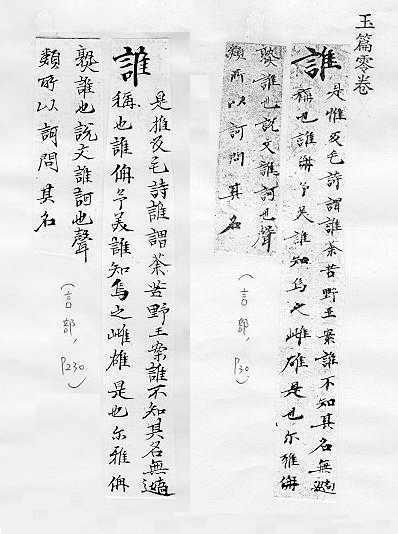 玉篇零卷
誰
是惟反毛詩謂誰荼苦野王案誰不知其名無適
稱也誰侜予美誰知烏之雌雄是也尒雅侜
孰誰也說文誰訶也聲
類所以訶問其名
(言部,P30)
誰
是推反毛詩誰謂荼苦野王案誰不知其名無適
稱也誰侜予美誰知烏之雌雄是也尒雅侜
孰誰也說文誰訶也聲
類所以訶問其名
(言部,P230)